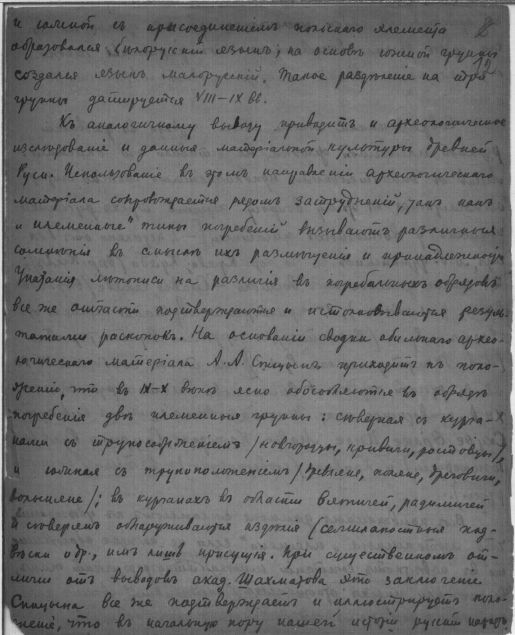 и южной съ присоединенiемъ польскаго элемента
образовался бѣлорусскiй языкъ; на основѣ южной группы
создался языкъ малорусскiй. Такое раздѣленiе на три
группы датируется VIII–IX вв.
Къ аналогичному выводу приводитъ и археологическое
изслѣдованiе и данныя матерiальной культуры древней
Руси. Использованiе въ этомъ направленiи археологическаго
матерiала сопровождается рядомъ затрудненiй, такъ какъ
и племенные" типы погребенiй вызываютъ различныя
сомнѣнiя въ смыслѣ ихъ размѣщенiя и принадлежности
Указанiя лѣтописи на различiя въ погребальныхъ обрядахъ
все же отчасти подтверждаются и истолковываются резуль-
татами раскопокъ. На основанiи сводки обильнаго архео-
логическаго матерiала А. А. Спицынъ приходитъ къ поло-
женiю, что въ IX–X вѣкѣ ясно обособляются въ обрядѣ
погребенiя двѣ племенныя группы: сѣверная съ курга-
нами съ трупосожженiемъ /новгородцы, кривичи, ростовцы/,
и южная съ трупоположенiемъ /древляне, поляне, дреговичи,
волыняне/; въ курганахъ въ области вятичей, радимичей
и сѣверянъ обнаруживаются издѣлiя (семилопастныя под-
вѣски и др., имъ лишь присущiя. При существенномъ от-
личiи отъ выводовъ акад. Шахматова это заключенiе
Спицына все же подтверждаетъ и иллюстрируетъ поло-
женiе, что въ начальную пору нашей исторiи русскiй народъ